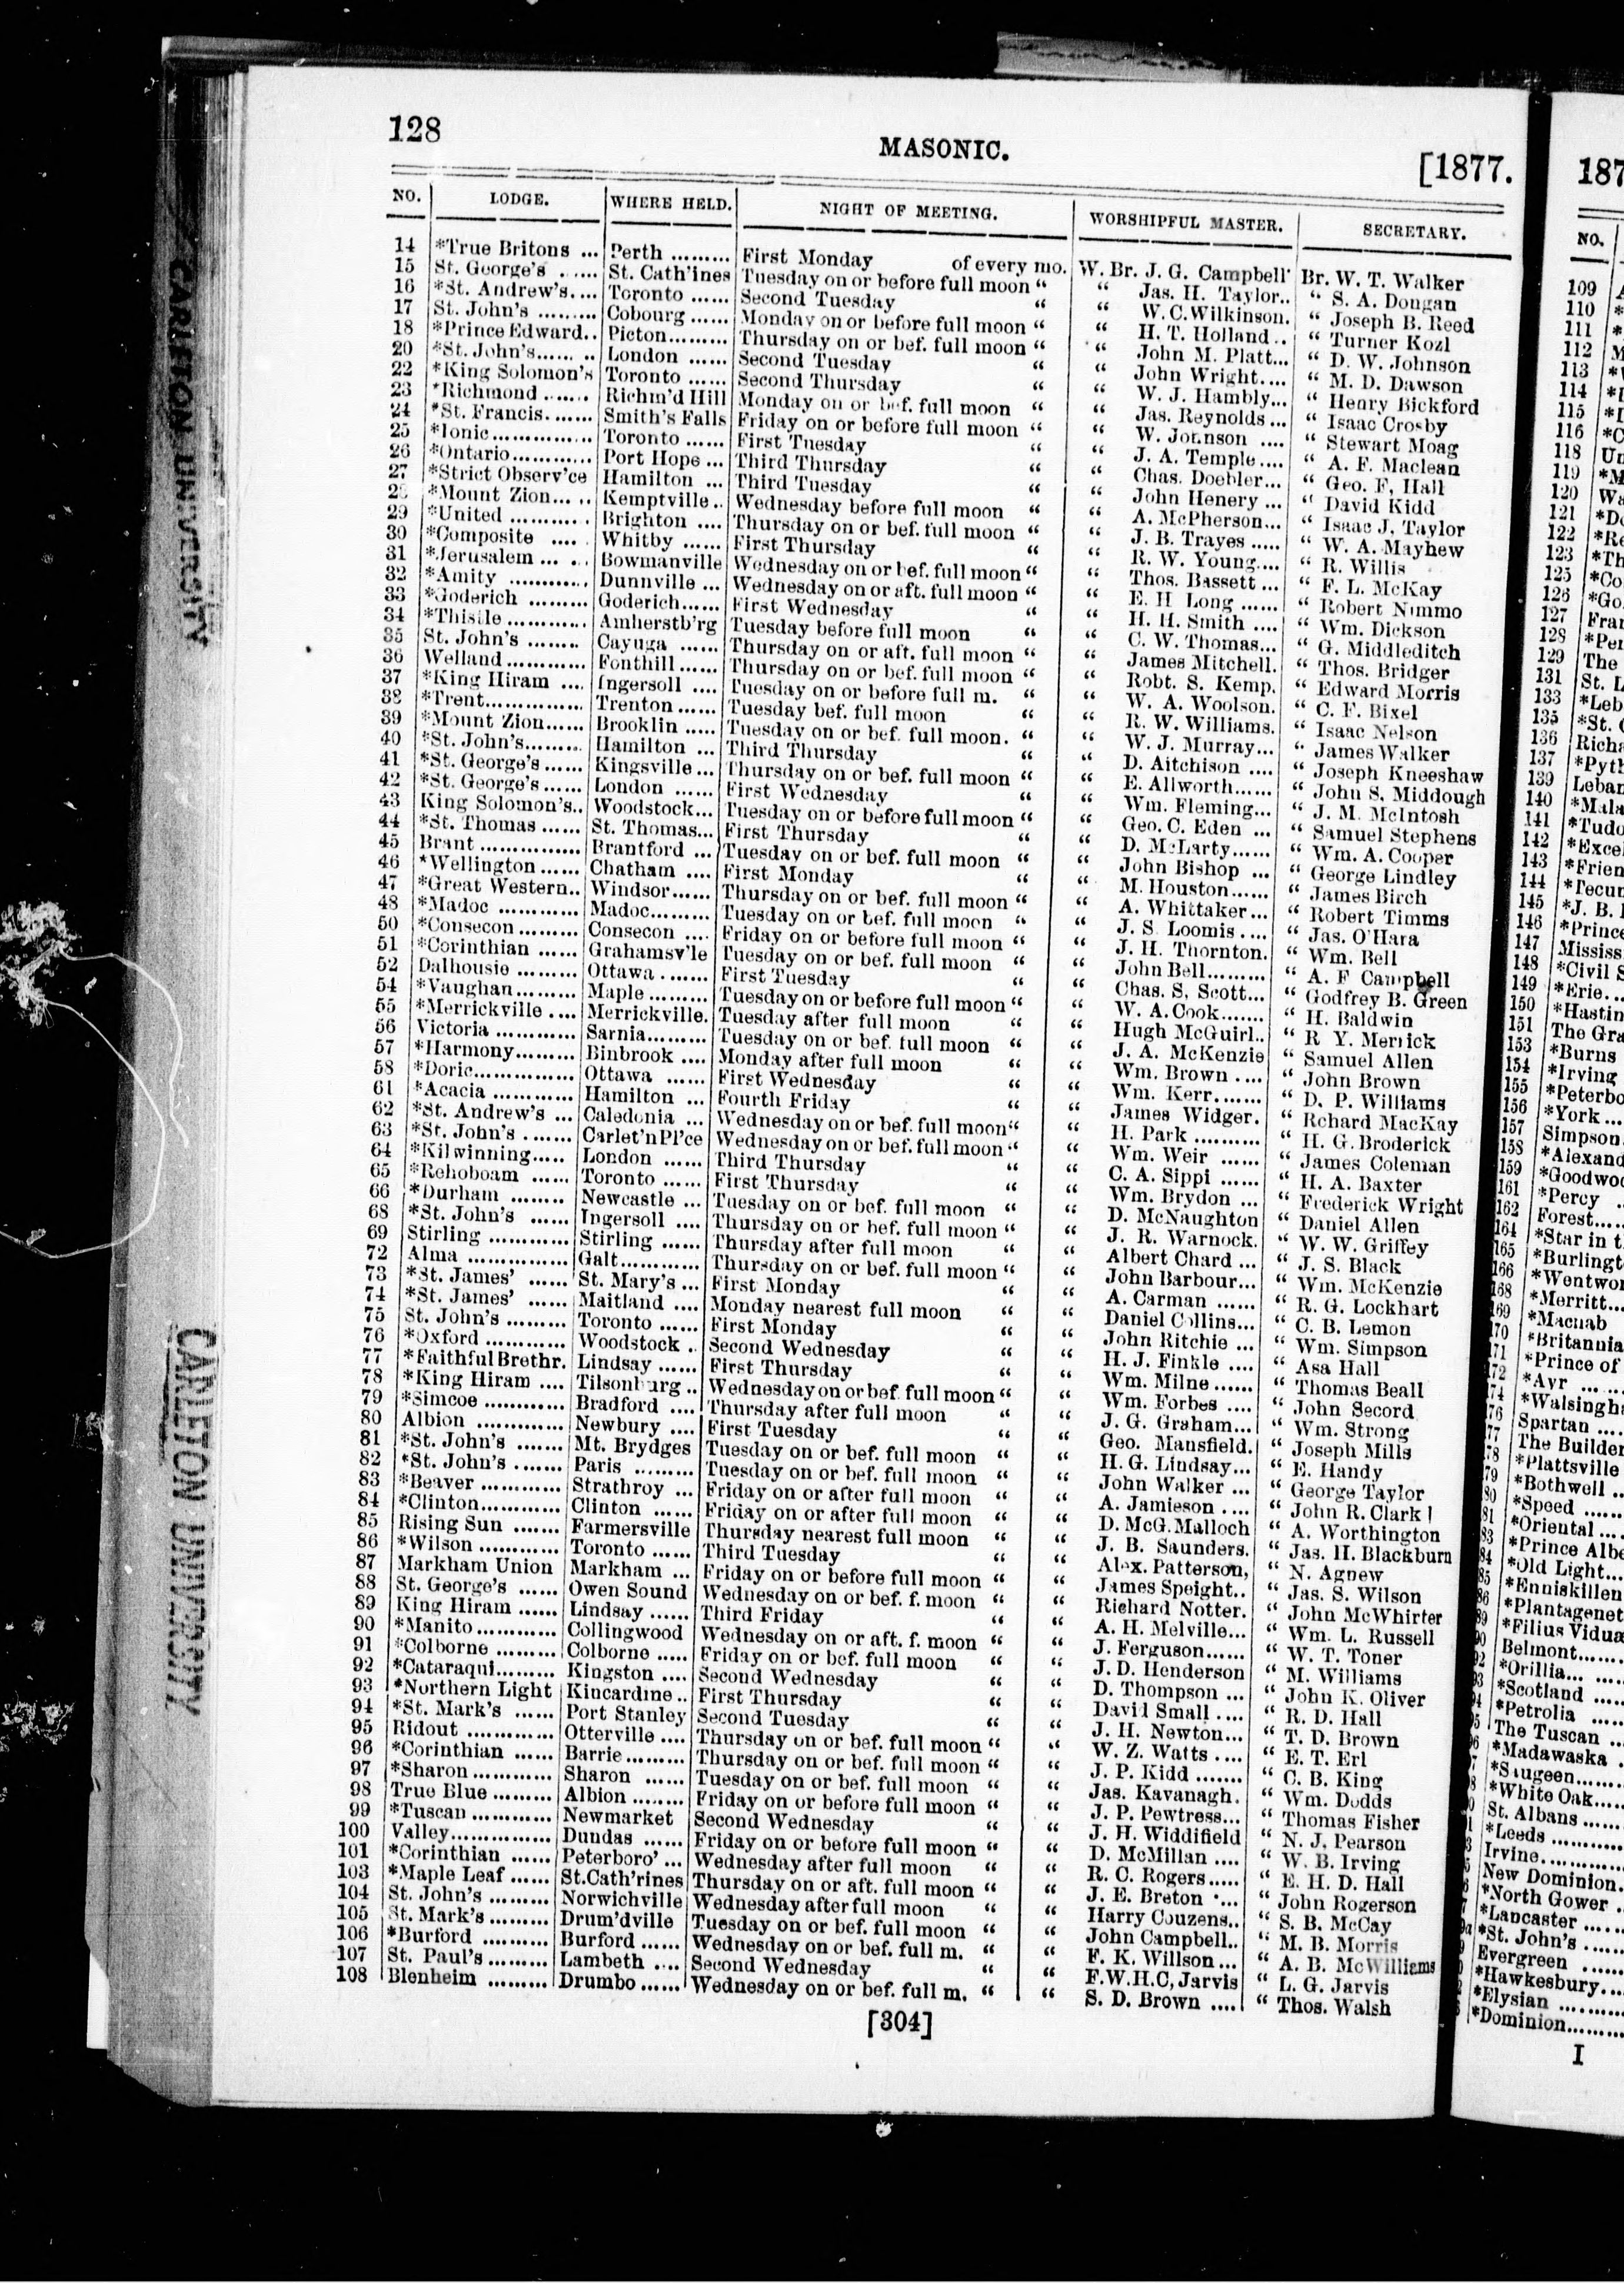 128 MASONIC. [1877.
NO. LODGE. WHERE HELD. NIGHT OF MEETING. WORSHIPFUL MASTER. SECRETARY.
14 *True Britons ... Perth ......... First Monday of every mo. W. Br. J. G. Campbell Br. W. T. Walker
15 St. George's ...... St. Cath'ines Tuesday on or before full moon “ “ Jas. H. Taylor.. “ S. A. Dongan
16 *St. Andrew's.... Toronto ...... Second Tuesday “ “ W. C. Wilkinson. “ Joseph B. Reed
17 St. John's ......... Cobourg ...... Monday on or before full moon “ “ H. T. Holland.. “ Turner Kozl
18 *Prince Edward.. Picton......... Thursday on or bef. full moon “ “ John M. Platt... “ D. W. Johnson
20 *St. John's........ London ...... Second Tuesday “ “ John Wright.... “ M. D. Dawson
22 *King Solomon's Toronto ...... Second Thursday “ “ W. J. Hambly... “ Henry Bickford
23 *Richmond ...... Richm'd Hill Monday on or bef. full moon “ “ Jas. Reynolds... “ Isaac Crosby
24 *St. Francis....... Smith's Falls Friday on or before full moon “ “ W. Johnson .... “ Stewart Moag
25 *Ionic.............. Toronto ...... First Tuesday “ “ J. A. Temple.... “ A. F. Maclean
26 *Ontario............ Port Hope ... Third Thursday “ “ Chas. Doebler... “ Geo. F, Hall
27 *Strict Observ'ce Hamilton ... Third Tuesday “ “ John Henery ... “ David Kidd
28 *Mount Zion..... Kemptville.. Wednesday before full moon “ “ A. McPherson... “ Isaac J. Taylor
29 *United ........... Brighton .... Thursday on or bef. full moon “ “ J. B. Trayes ..... “ W. A. Mayhew
30 *Composite .... Whitby ...... First Thursday “ “ R. W. Young.... “ R. Willis
31 *Jerusalem ..... Bowmanville Wednesday on or bef. full moon “ “ Thos. Bassett ... “ F. L. McKay
32 *Amity ............ Dunnville ... Wednesday on or aft. full moon “ “ E. H Long ...... “ Robert Nimmo
33 *Goderich ......... Goderich...... First Wednesday “ “ H. H. Smith .... “ Wm. Dickson
34 *Thistle ............ Amherstb'rg Tuesday before full moon “ “ C. W. Thomas... “ G. Middleditch
35 St. John's ........ Cayuga ...... Thursday on or aft. full moon “ “ James Mitchell. “ Thos. Bridger
36 Welland ............ Fonthill ...... Thursday on or bef. full moon “ “ Robt. S. Kemp. “ Edward Morris
37 *King Hiram .... Ingersoll .... Tuesday on or before full m. “ “ W. A. Woolson. “ C. F. Bixel
38 *Trent............... Trenton ...... Tuesday bef. full moon “ “ R. W. Williams. “ Isaac Nelson
39 *Mount Zion...... Brooklin ..... Tuesday on or bef. full moon. “ “ W. J. Murray... “ James Walker
40 *St. John's......... Hamilton ... Third Thursday “ “ D. Aitchison .... “ Joseph Kneeshaw
41 *St. George's ...... Kingsville ... Thursday on or bef. full moon “ “ E. Allworth...... “ John S. Middough
42 *St. George's ...... London ...... First Wednesday “ “ Wm. Fleming... “ J. M. McIntosh
43 King Solomon's.. Woodstock... Tuesday on or before full moon “ “ Geo. C. Eden ... “ Samuel Stephens
44 *St. Thomas ...... St. Thomas... First Thursday “ “ D. McLarty...... “ Wm. A. Cooper
45 Brant ............... Brantford ... Tuesday on or bef. full moon “ “ John Bishop ... “ George Lindley
46 *Wellington ...... Chatham .... First Monday “ “ M. Houston...... “ James Birch
47 *Great Western.. Windsor...... Thursday on or bef. full moon “ “ A. Whittaker... “ Robert Timms
48 *Madoc ............ Madoc......... Tuesday on or bef. full moon “ “ J. S. Loomis .... “ Jas. O'Hara
50 *Consecon ......... Consecon .... Friday on or before full moon “ “ J. H. Thornton. “ Wm. Bell
51 *Corinthian ...... Grahamsv'le Tuesday on or bef. full moon “ “ John Bell......... “ A. F Campbell
52 Dalhousie ......... Ottawa ....... First Tuesday “ “ Chas. S. Scott... “ Godfrey B. Green
54 *Vaughan......... Maple ......... Tuesday on or before full moon “ “ W. A. Cook....... “ H. Baldwin
55 *Merrickville .... Merrickville. Tuesday after full moon “ “ Hugh McGuirl.. “ R Y. Merrick
56 Victoria ............ Sarnia......... Tuesday on or bef. full moon “ “ J. A. McKenzie “ Samuel Allen
57 *Harmony......... Binbrook .... Monday after full moon “ “ Wm. Brown .... “ John Brown
58 *Doric............... Ottawa ...... First Wednesday “ “ Wm. Kerr....... “ D. P. Williams
61 *Acacia ............ Hamilton ... Fourth Friday “ “ James Widger. “ Rchard MacKay
62 *St. Andrew's ... Caledonia ... Wednesday on or bef. full moon “ “ H. Park .......... “ H. G. Broderick
63 *St. John's ....... Carlet'n Pl'ce Wednesday on or bef. full moon “ “ Wm. Weir ...... “ James Coleman
64 *Kilwinning..... London ...... Third Thursday “ “ C. A. Sippi ...... “ H. A. Baxter
65 *Rehoboam ...... Toronto ...... First Thursday “ “ Wm. Brydon ... “ Frederick Wright
66 *Durham ........ Newcastle ... Tuesday on or bef. full moon “ “ D. McNaughton “ Daniel Allen
68 *St. John's ...... Ingersoll .... Thursday on or bef. full moon “ “ J. R. Warnock. “ W. W. Griffey
69 Stirling ............ Stirling ...... Thursday after full moon “ “ Albert Chard ... “ J. S. Black
72 Alma ............... Galt............ Thursday on or bef. full moon “ “ John Barbour... “ Wm. McKenzie
73 *St. James' ...... St. Mary's ... First Monday “ “ A. Carman ...... “ R. G. Lockhart
74 *St. James' ...... Maitland .... Monday nearest full moon “ “ Daniel Collins... “ C. B. Lemon
75 St. John's ......... Toronto ...... First Monday “ “ John Ritchie ... “ Wm. Simpson
76 *Oxford ............ Woodstock .. Second Wednesday “ “ H. J. Finkle .... “ Asa Hall
77 *Faithful Brethr. Lindsay ...... First Thursday “ “ Wm. Milne ...... “ Thomas Beall
78 *King Hiram .... Tilsonburg .. Wednesday on or bef. full moon “ “ Wm. Forbes .... “ John Secord
79 *Simcoe ............ Bradford .... Thursday after full moon “ “ J. G. Graham... “ Wm. Strong
80 Albion ............. Newbury .... First Tuesday “ “ Geo. Mansfield. “ Joseph Mills
81 *St. John's ....... Mt. Brydges Tuesday on or bef. full moon “ “ H. G. Lindsay... “ E. Handy
82 *St. John's ....... Paris ......... Tuesday on or bef. full moon “ “ John Walker ... “ George Taylor
83 *Beaver ............ Strathroy ... Friday on or after full moon “ “ A. Jamieson .... “ John R. Clark
84 *Clinton............ Clinton ...... Friday on or after full moon “ “ D. McG. Malloch “ A. Worthington
85 Rising Sun ....... Farmersville Thursday nearest full moon “ “ J. B. Saunders. “ Jas. H. Blackburn
86 *Wilson ............ Toronto ...... Third Tuesday “ “ Alex. Patterson, “ N. Agnew
87 Markham Union Markham ... Friday on or before full moon “ “ James Speight.. “ Jas. S. Wilson
88 St. George's ...... Owen Sound Wednesday on or bef. f. moon “ “ Richard Notter. “ John McWhirter
89 King Hiram ...... Lindsay ...... Third Friday “ “ A. H. Melville... “ Wm. L. Russell
90 *Manito ............ Collingwood Wednesday on or aft. f. moon “ “ J. Ferguson...... “ W. T. Toner
91 *Colborne ......... Colborne ..... Friday on or bef. full moon “ “ J. D. Henderson “ M. Williams
92 *Cataraqui......... Kingston .... Second Wednesday “ “ D. Thompson ... “ John K. Oliver
93 *Northern Light Kincardine .. First Thursday “ “ David Small .... “ R. D. Hall
94 *St. Mark's ...... Port Stanley Second Tuesday “ “ J. H. Newton... “ T. D. Brown
95 Ridout ............. Otterville .... Thursday on or bef. full moon “ “ W. Z. Watts .... “ E. T. Erl
96 *Corinthian ...... Barrie ......... Thursday on or bef. full moon “ “ J. P. Kidd ....... “ C. B. King
97 *Sharon ............ Sharon ...... Tuesday on or bef. full moon “ “ Jas. Kavanagh. “ Wm. Dodds
98 True Blue ......... Albion ........ Friday on or before full moon “ “ J. P. Pewtress... “ Thomas Fisher
99 *Tuscan ............ Newmarket Second Wednesday “ “ J. H. Widdifield “ N. J. Pearson
100 Valley............... Dundas ...... Friday on or before full moon “ “ D. McMillan .... “ W. B. Irving
101 *Corinthian ...... Peterboro' ... Wednesday after full moon “ “ R. C. Rogers..... “ E. H. D. Hall
103 *Maple Leaf ...... St. Cath'rines Thursday on or aft. full moon “ “ J. E. Breton ... “ John Rogerson
104 St. John's ......... Norwichville Wednesday after full moon “ “ Harry Couzens.. “ S. B. McCay
105 St. Mark's ......... Drum'dville Tuesday on or bef. full moon “ “ John Campbell.. “ M. B. Morris
106 *Burford .......... Burford ...... Wednesday on or bef. full m. “ “ F. K. Willson... “ A. B. McWilliams
107 St. Paul's ......... Lambeth .... Second Wednesday “ “ F. W. H. C, Jarvis “ L. G. Jarvis
108 Blenheim ......... Drumbo ...... Wednesday on or bef. full m. “ “ S. D. Brown .... “ Thos. Walsh
[304]
CARLETON UNIVERSITY
CARLETON UNIVERSITY
187
NO.
109
110 *
111 *
112 M
113
114
115
116 *C
118 Un
119 *M
120 Wa
121 *De
122 *Re
123 *Th
125 *Co
126 *Go
127 Fran
128 *Per
129 The
131 St. L
133 *Leb
135 *St. G
136 Richa
137 *Pyth
139 Leban
140 *Mala
141 *Tudo
142 *Excel
143 *Frien
144 *Tecum
145 *J. B.
146 *Prince
147 Mississ
148 *Civil S
149 *Erie...
150 *Hastin
151 The Gra
153 *Burns
154 *Irving
155 *Peterbo
156 *York ...
157 Simpson
158 *Alexand
159 *Goodwoo
161 *Percy
162 Forest....
164 *Star in t
165 *Burlingt
166 *Wentwor
168 *Merritt...
169 *Macnab
170 *Britannia
171 *Prince of
172 *Ayr ......
174 *Walsingh
76 Spartan ....
77 The Builder
78 *Plattsville
79 *Bothwell ..
80 *Speed ......
81 *Oriental ....
83 *Prince Albe
84 *Old Light...
85 *Enniskillen
86 *Plantagenet
89 *Filius Viduæ
90 Belmont......
92 *Orillia.......
93 *Scotland .....
94 *Petrolia .....
95 The Tuscan ..
96 *Madawaska .
*Saugeen.......
*White Oak.....
St. Albans ......
*Leeds ...........
Irvine............
New Dominion.
*North Gower .
*Lancaster ......
*St. John's ......
Evergreen ......
*Hawkesbury....
*Elysian ..........
*Dominion.........
I